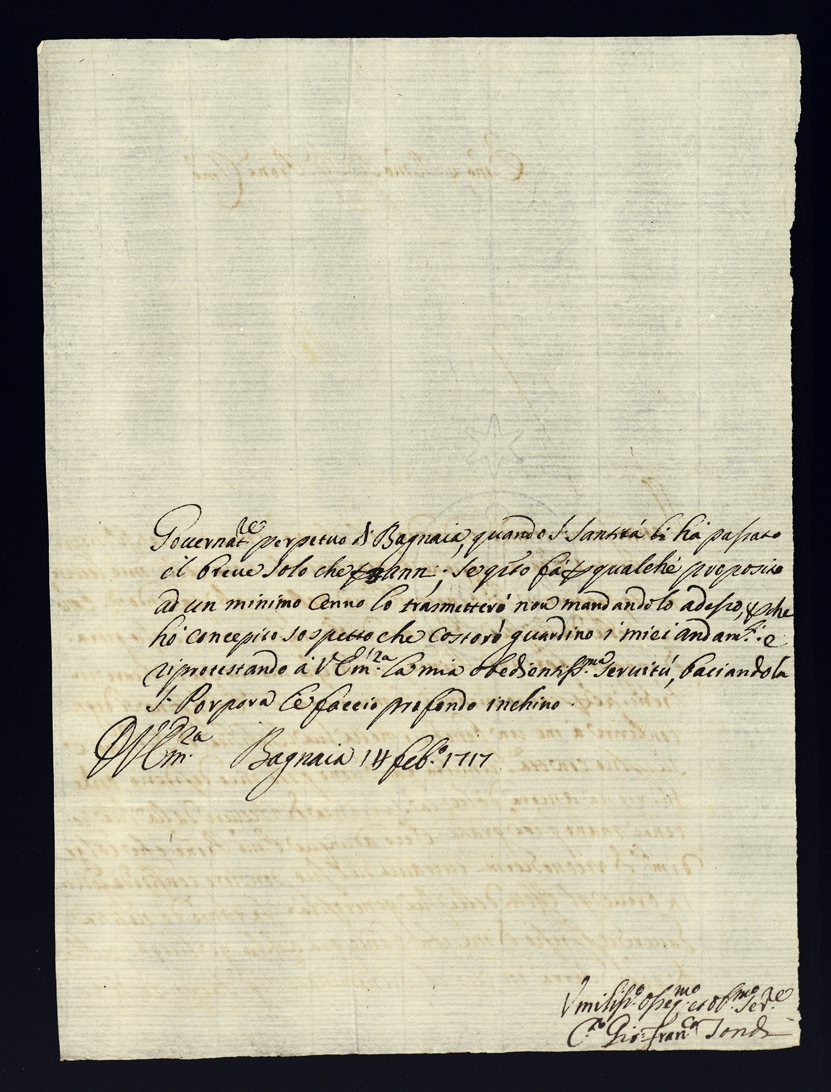 Governat.re perpetuo di Bagnaia, quando S. Santità li hà passato
il breve solo che p ann.; se q̃sto fà p qualche proposito
ad un minimo cenno lo trasmetterò non mandandolo adesso, p che
hò concepito sospetto che costoro guardino i miei andam.ti: e
riprotestando à V Em.za la mia obedientiss.ma servitù, baciandola
S. Porpora le faccio profondo inchino.
D V Em.za Bagnaia 14 feb.o 1717
Umiliss.o osseq.mo et obb.mo Ser.re
Gio: Fran.co Tondi